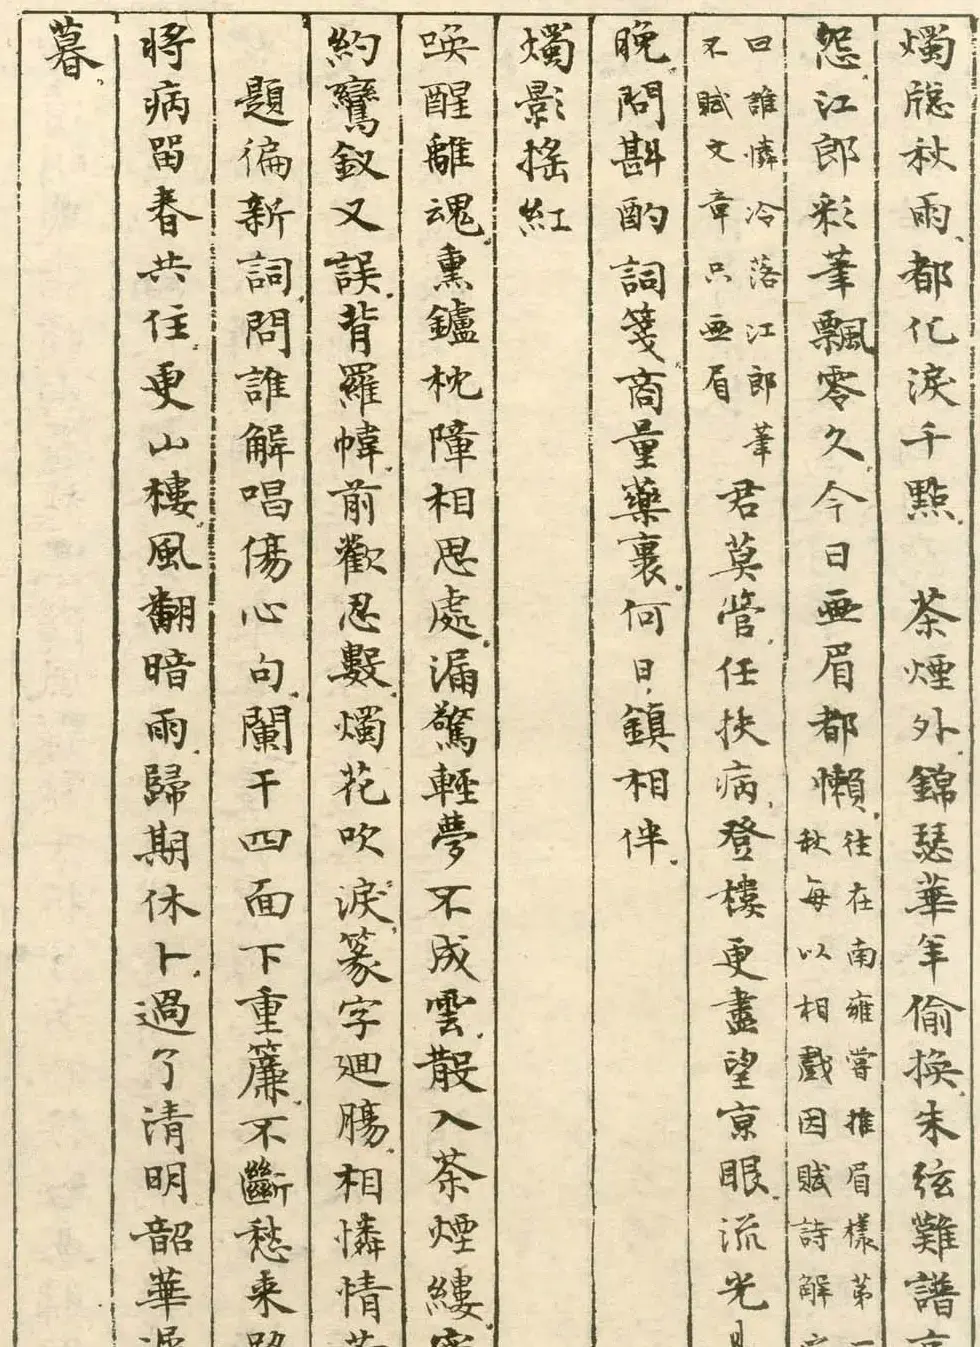 燭牕秋雨都化淚千點 茶煙外錦瑟華年偷換朱弦難譜
怨江郎彩筆飄零久今日畫眉都懶往在南雍嘗推眉樣第一
秋每以相戲因賦詩解
曰誰憐冷落江郎筆
不賦文章只畫眉君莫管任扶病登樓更盡望京眼流光
晚問斟酌詞箋商量藥裹何日鎮相伴
燭影搖紅
喚醒離魂熏鑪枕障相思處漏驚輕夢不成雲散入茶煙縷
約鸞釵又誤背羅幃前歡忍數燭花吹淚篆字迴腸相憐情
題徧新詞問誰解唱傷心句闌干四面下重簾不斷愁來路
將病留春共住更山樓風翻暗雨歸期休卜過了清明韶華
暮